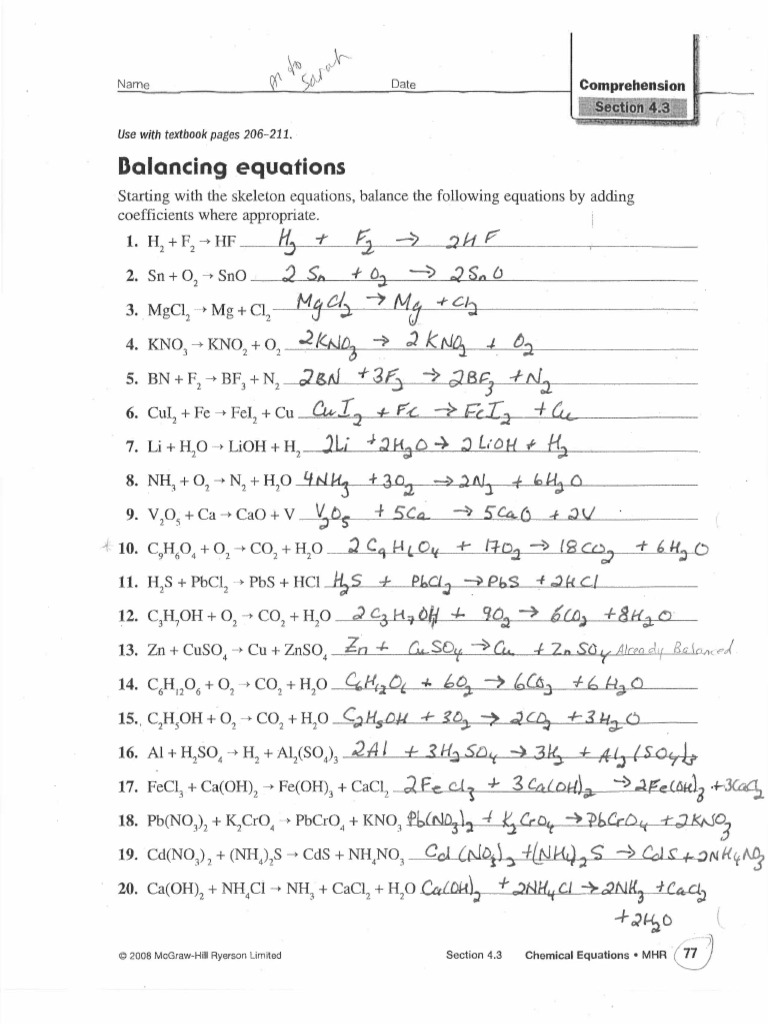 m to
Sarah
Name Date Comprehension
Section 4.3
Use with textbook pages 206–211.
Balancing equations
Starting with the skeleton equations, balance the following equations by adding
coefficients where appropriate.
1. H₂ + F₂ → HF H₂ + F₂ → 2HF
2. Sn + O₂ → SnO 2 Sn + O₂ → 2SnO
3. MgCl₂ → Mg + Cl₂ MgCl₂ → Mg + Cl₂
4. KNO₃ → KNO₂ + O₂ 2KNO₃ → 2 KNO₂ + O₂
5. BN + F₂ → BF₃ + N₂ 2BN + 3F₂ → 2BF₃ + N₂
6. CuI₂ + Fe → FeI₂ + Cu CuI₂ + Fe → FeI₂ + Cu
7. Li + H₂O → LiOH + H₂ 2Li + 2H₂O → 2 LiOH + H₂
8. NH₃ + O₂ → N₂ + H₂O 4NH₃ + 3O₂ → 2N₂ + 6H₂O
9. V₂O₅ + Ca → CaO + V V₂O₅ + 5Ca → 5CaO + 2V
10. C₉H₆O₄ + O₂ → CO₂ + H₂O 2 C₉H₆O₄ + 17O₂ → 18CO₂ + 6H₂O
11. H₂S + PbCl₂ → PbS + HCl H₂S + PbCl₂ → PbS + 2HCl
12. C₃H₇OH + O₂ → CO₂ + H₂O 2C₃H₇OH + 9O₂ → 6CO₂ + 8H₂O
13. Zn + CuSO₄ → Cu + ZnSO₄ Zn + CuSO₄ → Cu + ZnSO₄ Already Balanced
14. C₆H₁₂O₆ + O₂ → CO₂ + H₂O C₆H₁₂O₆ + 6O₂ → 6CO₂ + 6H₂O
15. C₂H₅OH + O₂ → CO₂ + H₂O C₂H₅OH + 3O₂ → 2CO₂ + 3H₂O
16. Al + H₂SO₄ → H₂ + Al₂(SO₄)₃ 2Al + 3H₂SO₄ → 3H₂ + Al₂(SO₄)₃
17. FeCl₃ + Ca(OH)₂ → Fe(OH)₃ + CaCl₂ 2FeCl₃ + 3Ca(OH)₂ → 2Fe(OH)₃ + 3CaCl₂
18. Pb(NO₃)₂ + K₂CrO₄ → PbCrO₄ + KNO₃ Pb(NO₃)₂ + K₂CrO₄ → PbCrO₄ + 2KNO₃
19. Cd(NO₃)₂ + (NH₄)₂S → CdS + NH₄NO₃ Cd(NO₃)₂ + (NH₄)₂S → CdS + 2NH₄NO₃
20. Ca(OH)₂ + NH₄Cl → NH₃ + CaCl₂ + H₂O Ca(OH)₂ + 2NH₄Cl → 2NH₃ + CaCl₂
+ 2H₂O
© 2008 McGraw-Hill Ryerson Limited Section 4.3 Chemical Equations • MHR 77